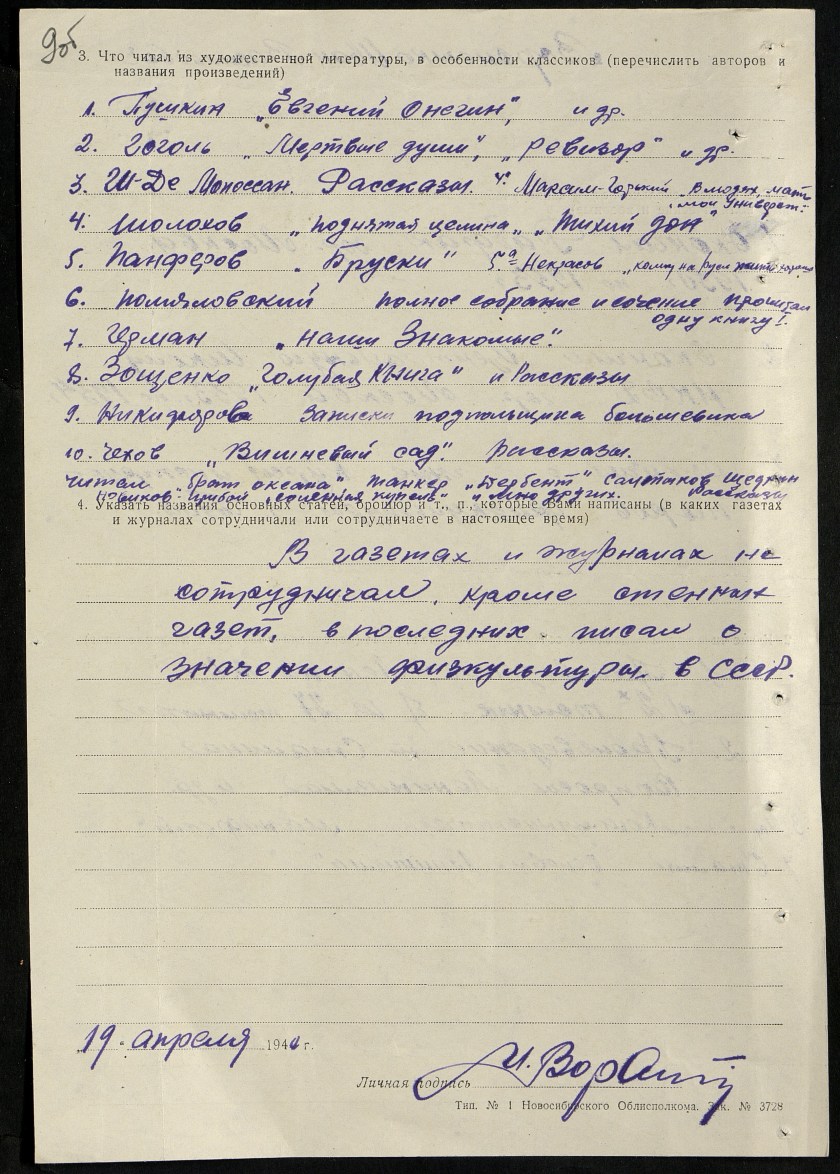 9об
3. Что читал из художественной литературы, в особенности классиков (перечислить авторов и
названия произведений)
1. Пушкин „Евгений Онегин", и др.
2. Гоголь „Мертвые души", „Ревизор" и др.
3. Ги-Де Мопоссан. Рассказы. 4а Максим-Горький „В людях, мать
мои Универст."
4. Шолохов „Поднятая целина„ „Тихий дон"
5. Панферов „Бруски" 5а Некрасов „кому на Руси жить хорошо
6. Помяловский полное собрание исочение прочитал
одну книгу!.
7. Герман „Наши Знакомые".
8. Зощенко „Голубая Книга" и Рассказы
9. Никифорова Записки подпольщика большевика
10. Чехов „Вишневый сад". Рассказы.
Читал „брат океана" танкер „Дербент" Салтыков Щедрин
Новиков-Прибой „соленная купель" и много других. Рассказы
4. Указать названия основных статей, брошюр и т., п., которые Вами написаны (в каких газетах
и журналах сотрудничали или сотрудничаете в настоящее время)
В газетах и журналах не
сотрудничал, кроме стенных
газет, в последних писал о
значении физкультуры. в СССР.
19 апреля 1941 г.
Личная подпись
Тип. № 1 Новосибирского Облисполкома. Зак. № 3728